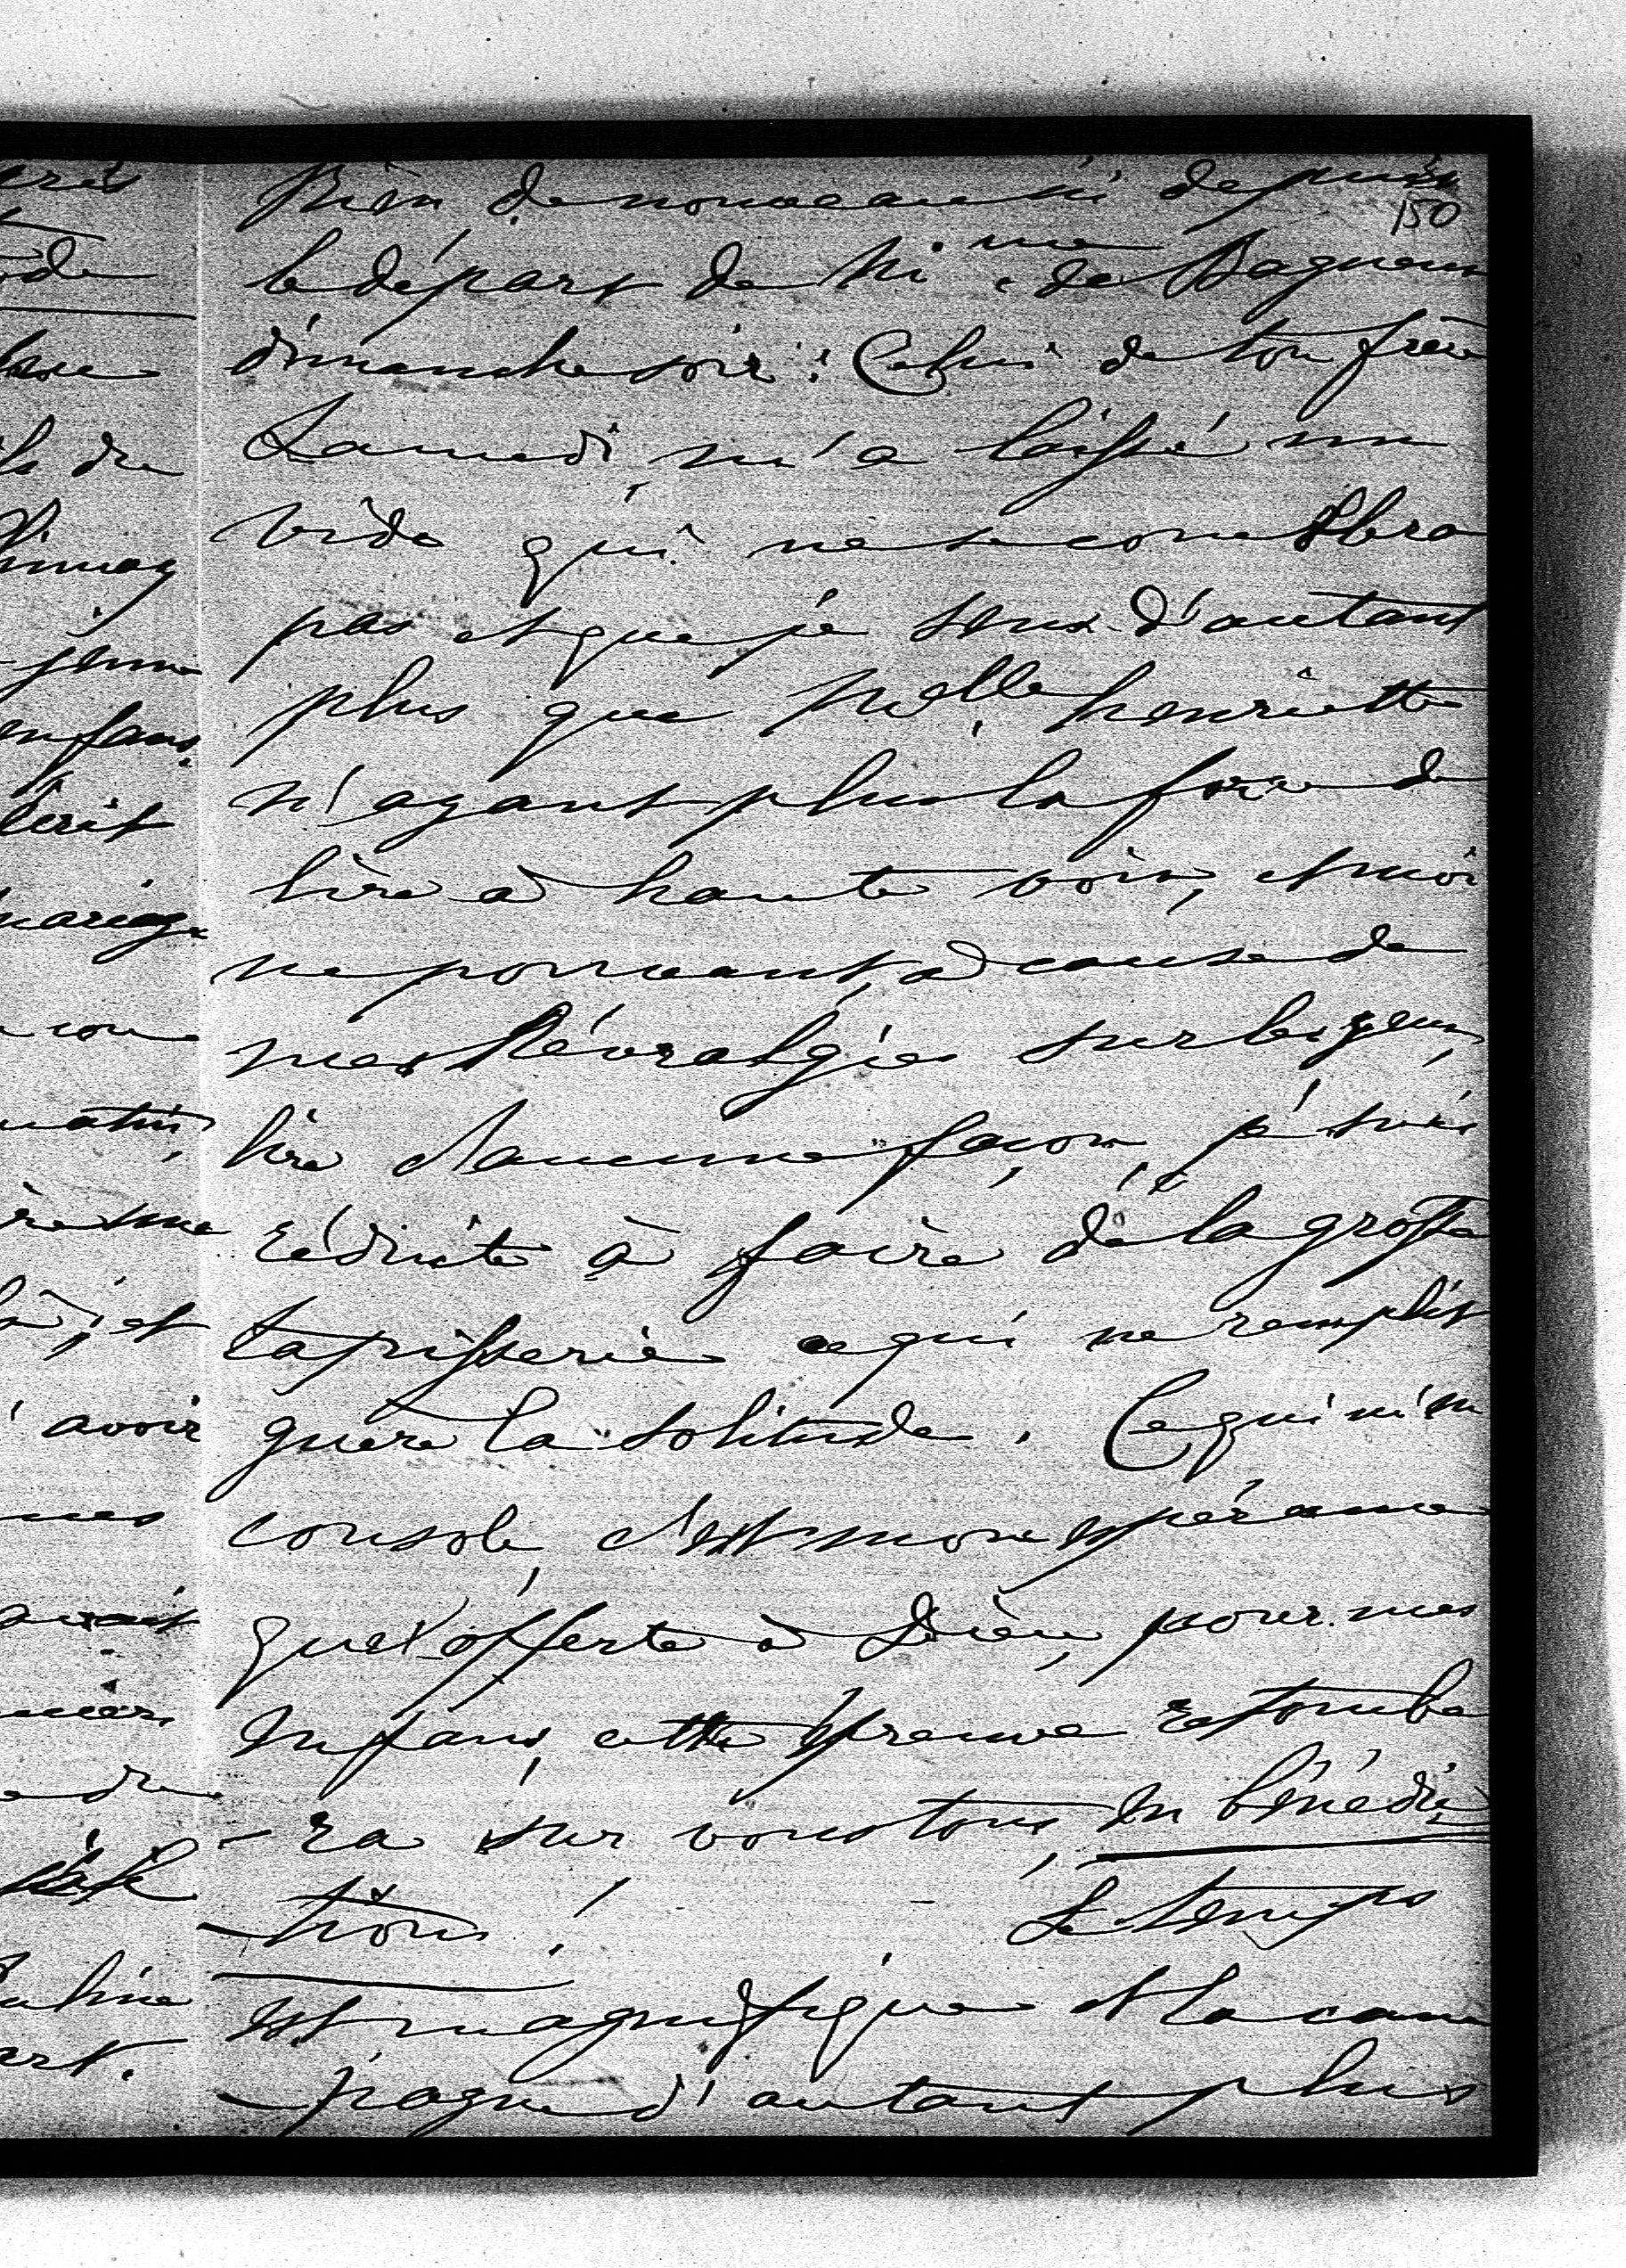 150
Rien de nouveau ici depuis
le départ de M.me de Bagneux
dimanche soir : Celui de ton frère
Samedi m'a laissé un
vide qui ne se comblera
pas et que je sens d'autant
plus que Melle henriette
n'ayant plus la force de
lire à haute voix, et moi
ne pouvant, à cause de
mes Névralgies sur les yeux,
lire d'aucune façon, je suis
réduite à faire de la grosse
tapisserie ce qui ne remplit
guère la solitude. Ce qui m'en
console, c'est mon espérance
que offerte à Dieu, pour mes
Enfans, cette Epreuve retombe
- ra sur vous tous, en bénédic
- tions ! Le temps
est magnifique et la cam
- pagne d'autant plus
de
du
jeune
enfans.
écrit
mariage
matin,
et
avoir
mes